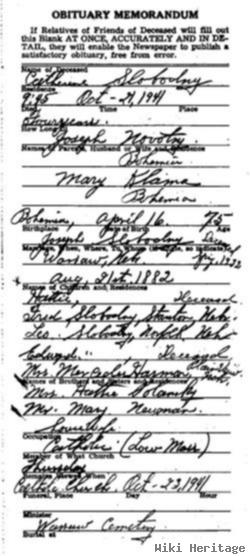 OBITUARY MEMORANDUM
If Relatives of Friends of Deceased will fill out
this Blank AT ONCE, ACCURATELY AND IN DE-
TAIL, they will enable the Newspaper to publish a
satisfactory obituary, free from error.
Name of Deceased
Catherine Slobodny
Residence
9:45 Oct-21, 1941
Date Time Place
Four years
How Long
Joseph Novotny
Names of Parents, Husband or Wife and Residence
Bohemia
Mary Blama
Bohemia
Bohemia, April 16, 75
Birthplace Date of Birth Age
Joseph Slobodny
Warsaw, Neb.
Aug 21st 1882
Names of Children and Residences
Hattie, Deceased
Fred Slobodny Stanton, Nebr.
Leo Slobodny, Norfolk Neb
Edward " , Deceased
Mrs. Harman,
Names of Brothers and Sisters and Residences
Mrs. Hattie
Mrs. Mary Newman.
Housewife
Occupation
Catholic (Low Mass)
Member of What Church
Thursday
Remains Shown When
Catholic Church Oct-23, 1941
Funeral, Place Day Hour
Minister
Warsaw Cemetery
Burial at
Wiki Heritage